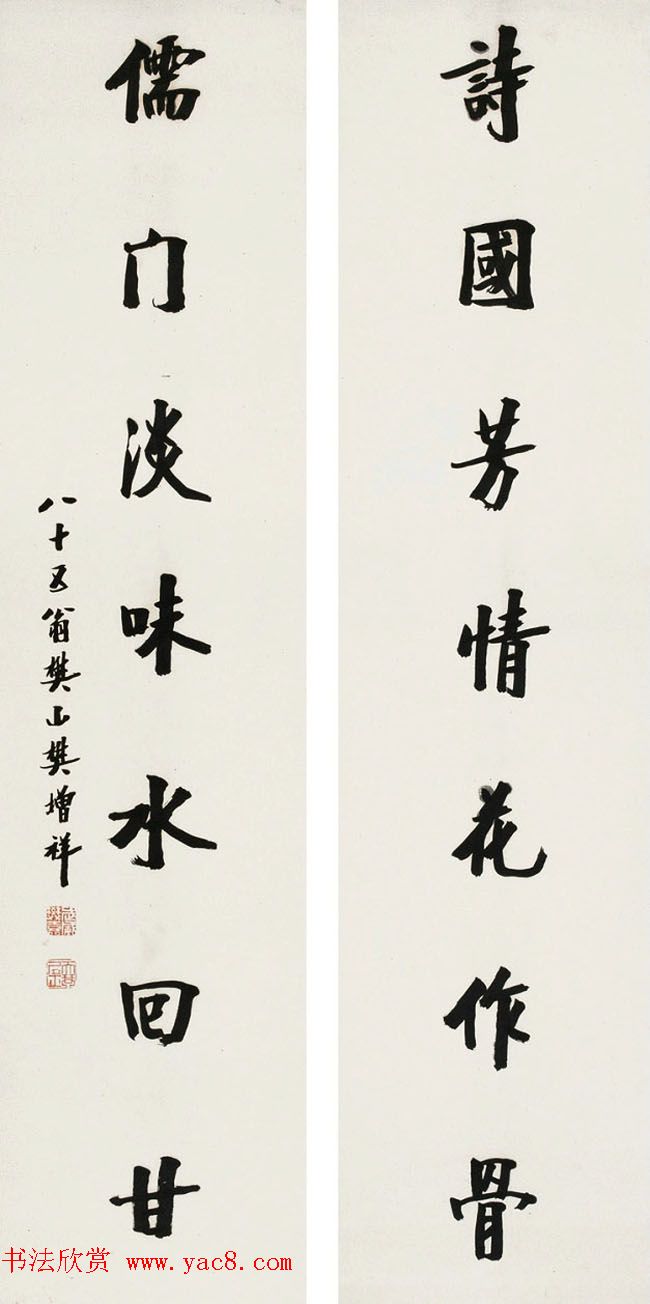 詩國芳情花作骨
儒门淡味水回甘
八十五翁樊山樊增祥
书法欣赏 www.yac8.com